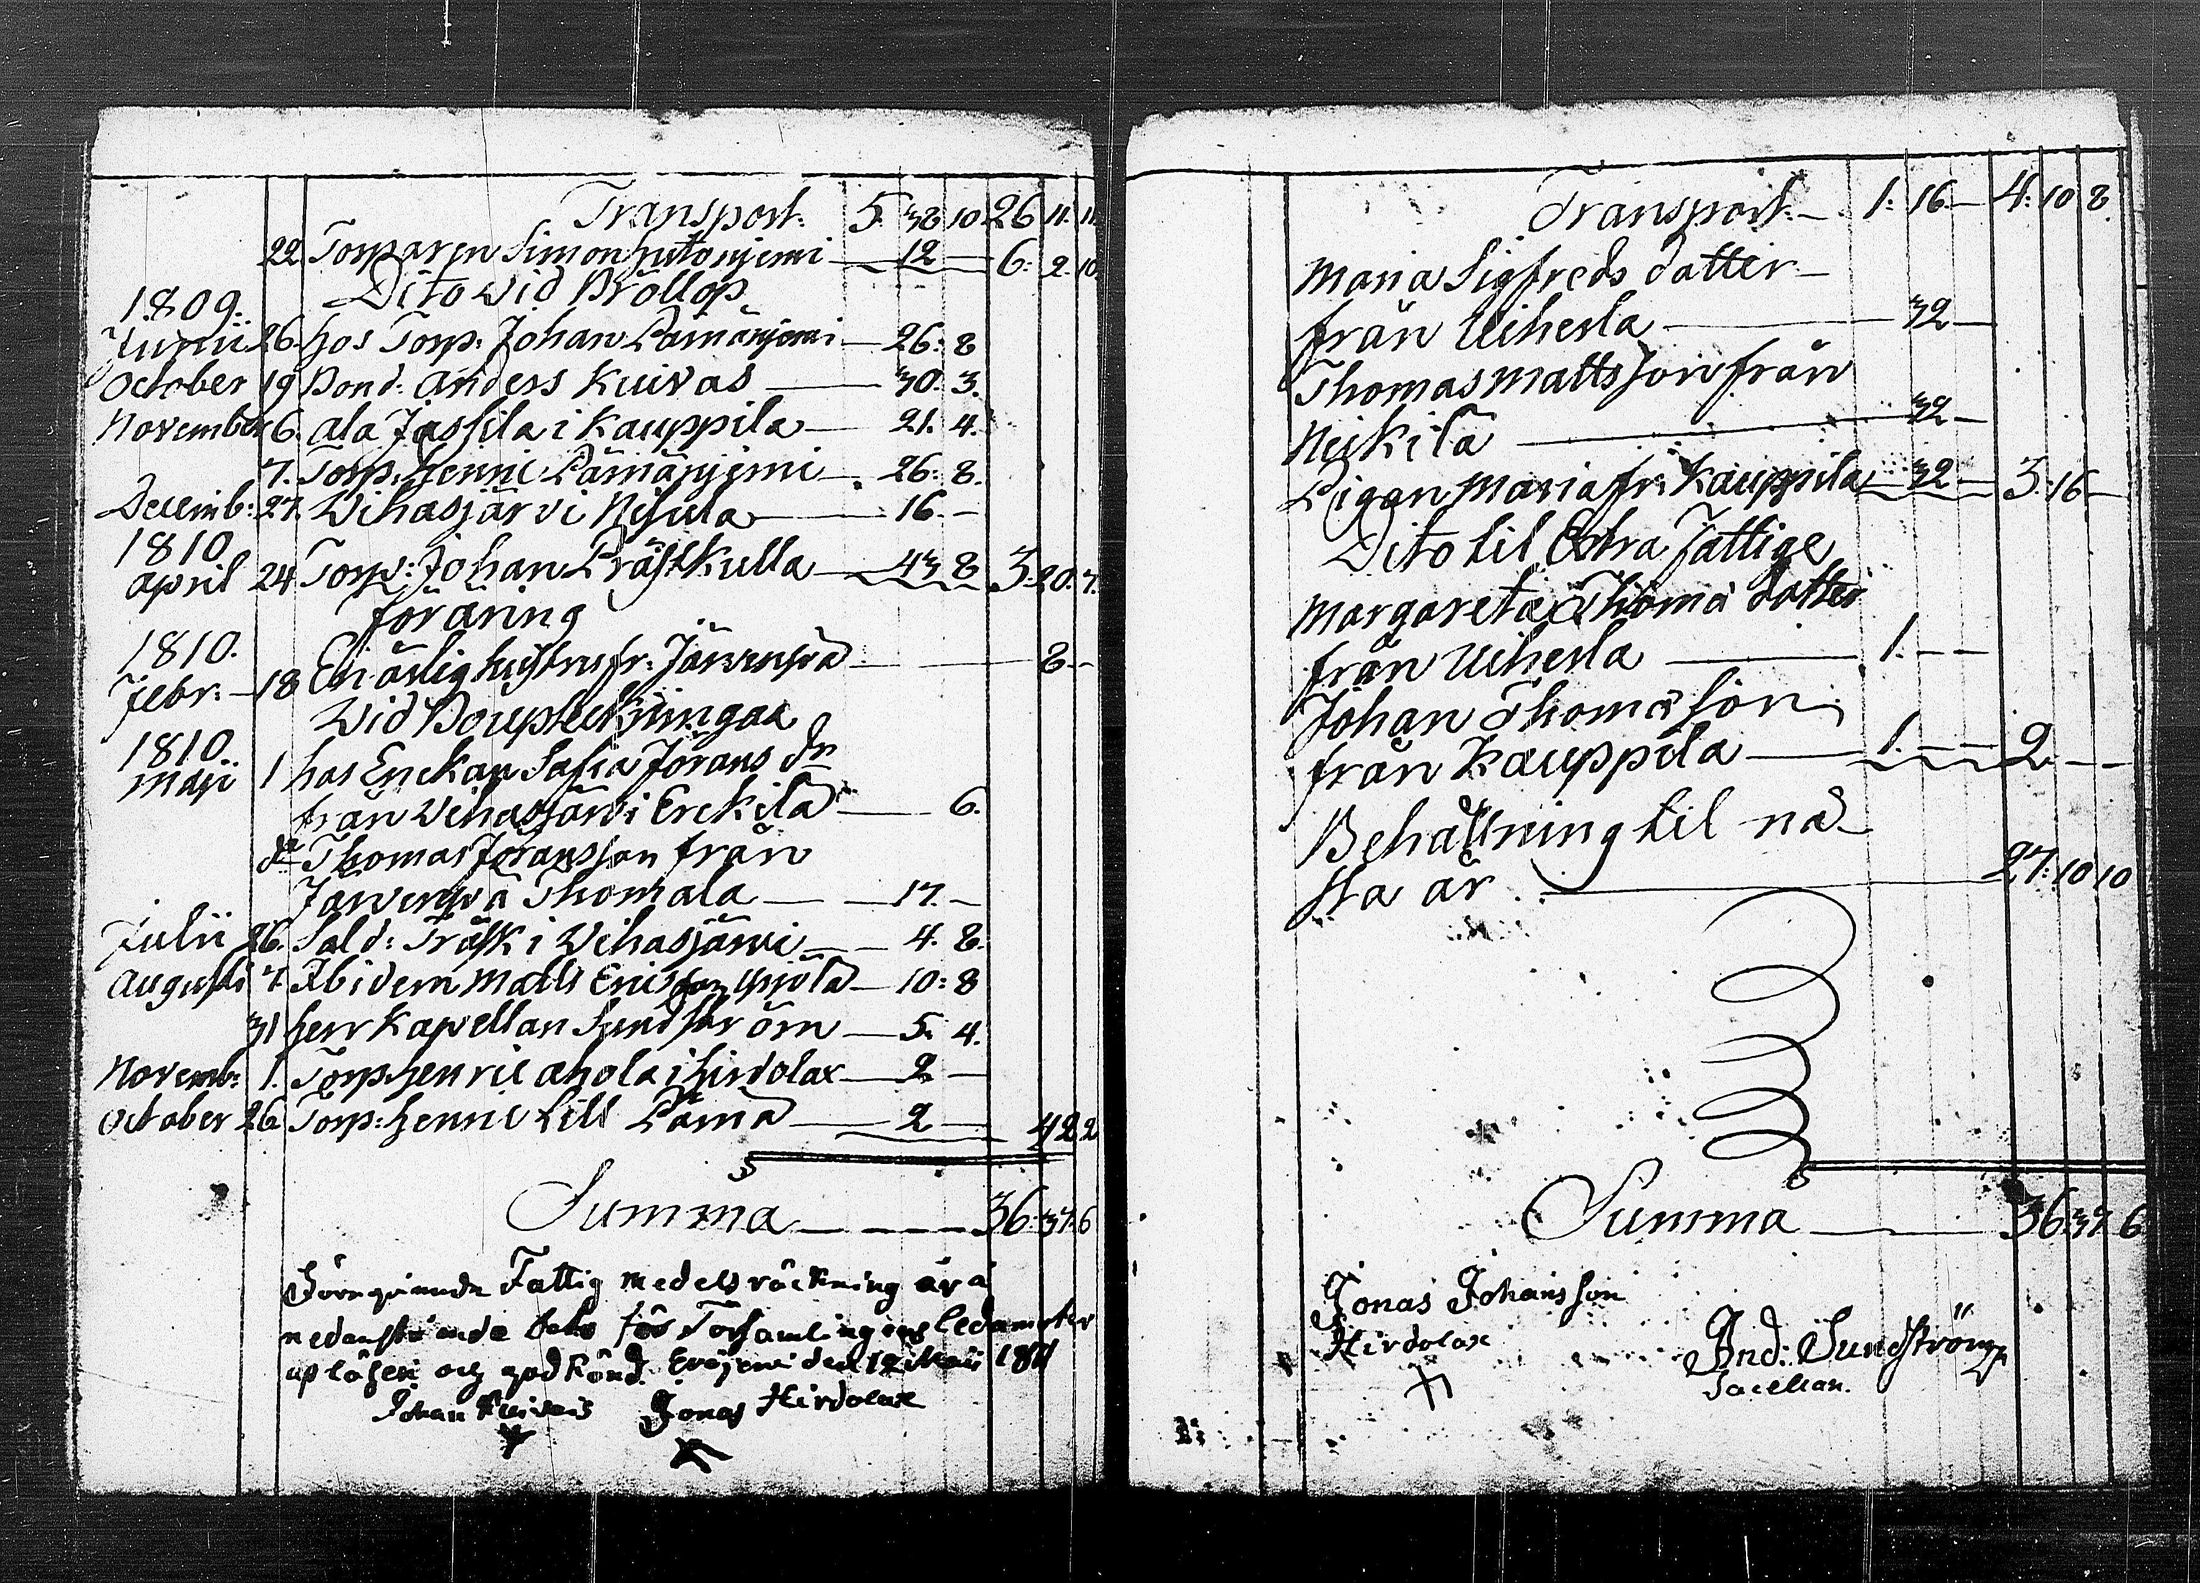 Transport: 5. 38 10 26 11. 11
22 Torparen Simon hutoniemi 12 6. 2. 10
Dito wid Bröllop
1809.
Junii 26. hos Torp: Johan Lämäniemi 26: 8.
October 19 Bond: Anders Kuivas 30. 3.
November 6. Ala Jassila i Kauppila 21. 4.
7. Torp: henric Lämäniemi 26: 8.
Decemb: 27. Wihasjärvi Nisula 16. -
1810
april 24 Torp: Johan Prästkulla 43 8 3. 20. 7.
föräring
1810.
Febr: 18 En ärlig hustru fr: Järvenpä 8 -
Wid
1810.
maji 1 hos Enckan Safia Jörans dr
från Wihasjärvi Erckilä 6.
do Thomas Jöransson från
Järvenpä Thomala 17. -
Julii 26. Sold: Träsk i Wihasjärvi 4. 8.
Augusti 7. Ibidem Matts Ericsson 10: 8
31 herr Kapellan Sundström 5. 4.
Novemb: 1. Torp henric ahola i hirdolax 2 -
October 26. Torp: henric Lill Lämä 2 - 42 2
Summa 36. 37. 6
Föregående Fattig medels räckning är å
nedanstående för Församlingens ledamöter
upläsen och godkänd. Eräjerwi den 12 Maii 1811
Johan Kuivais Jonas Hirdolax
Transport. 1. 16 - 4. 10 8.
Maria Sigfreds dotter
från Uiherla 32 -
Thomas Mattsson från
Neikilä 32 -
Pigan Maria fr: Kauppila 32 - 3. 16 -
Dito til Extra Fattige
Margareta Thoma dotter
från Uiherla 1. - -
Johan Thoma son
från Kauppila 1. - - 2 - -
Behållning til nä-
sta år 27. 10 10
Summa 36. 37. 6
Jonas Johansson
Hirdolax
And: Sundström
Sacellan.